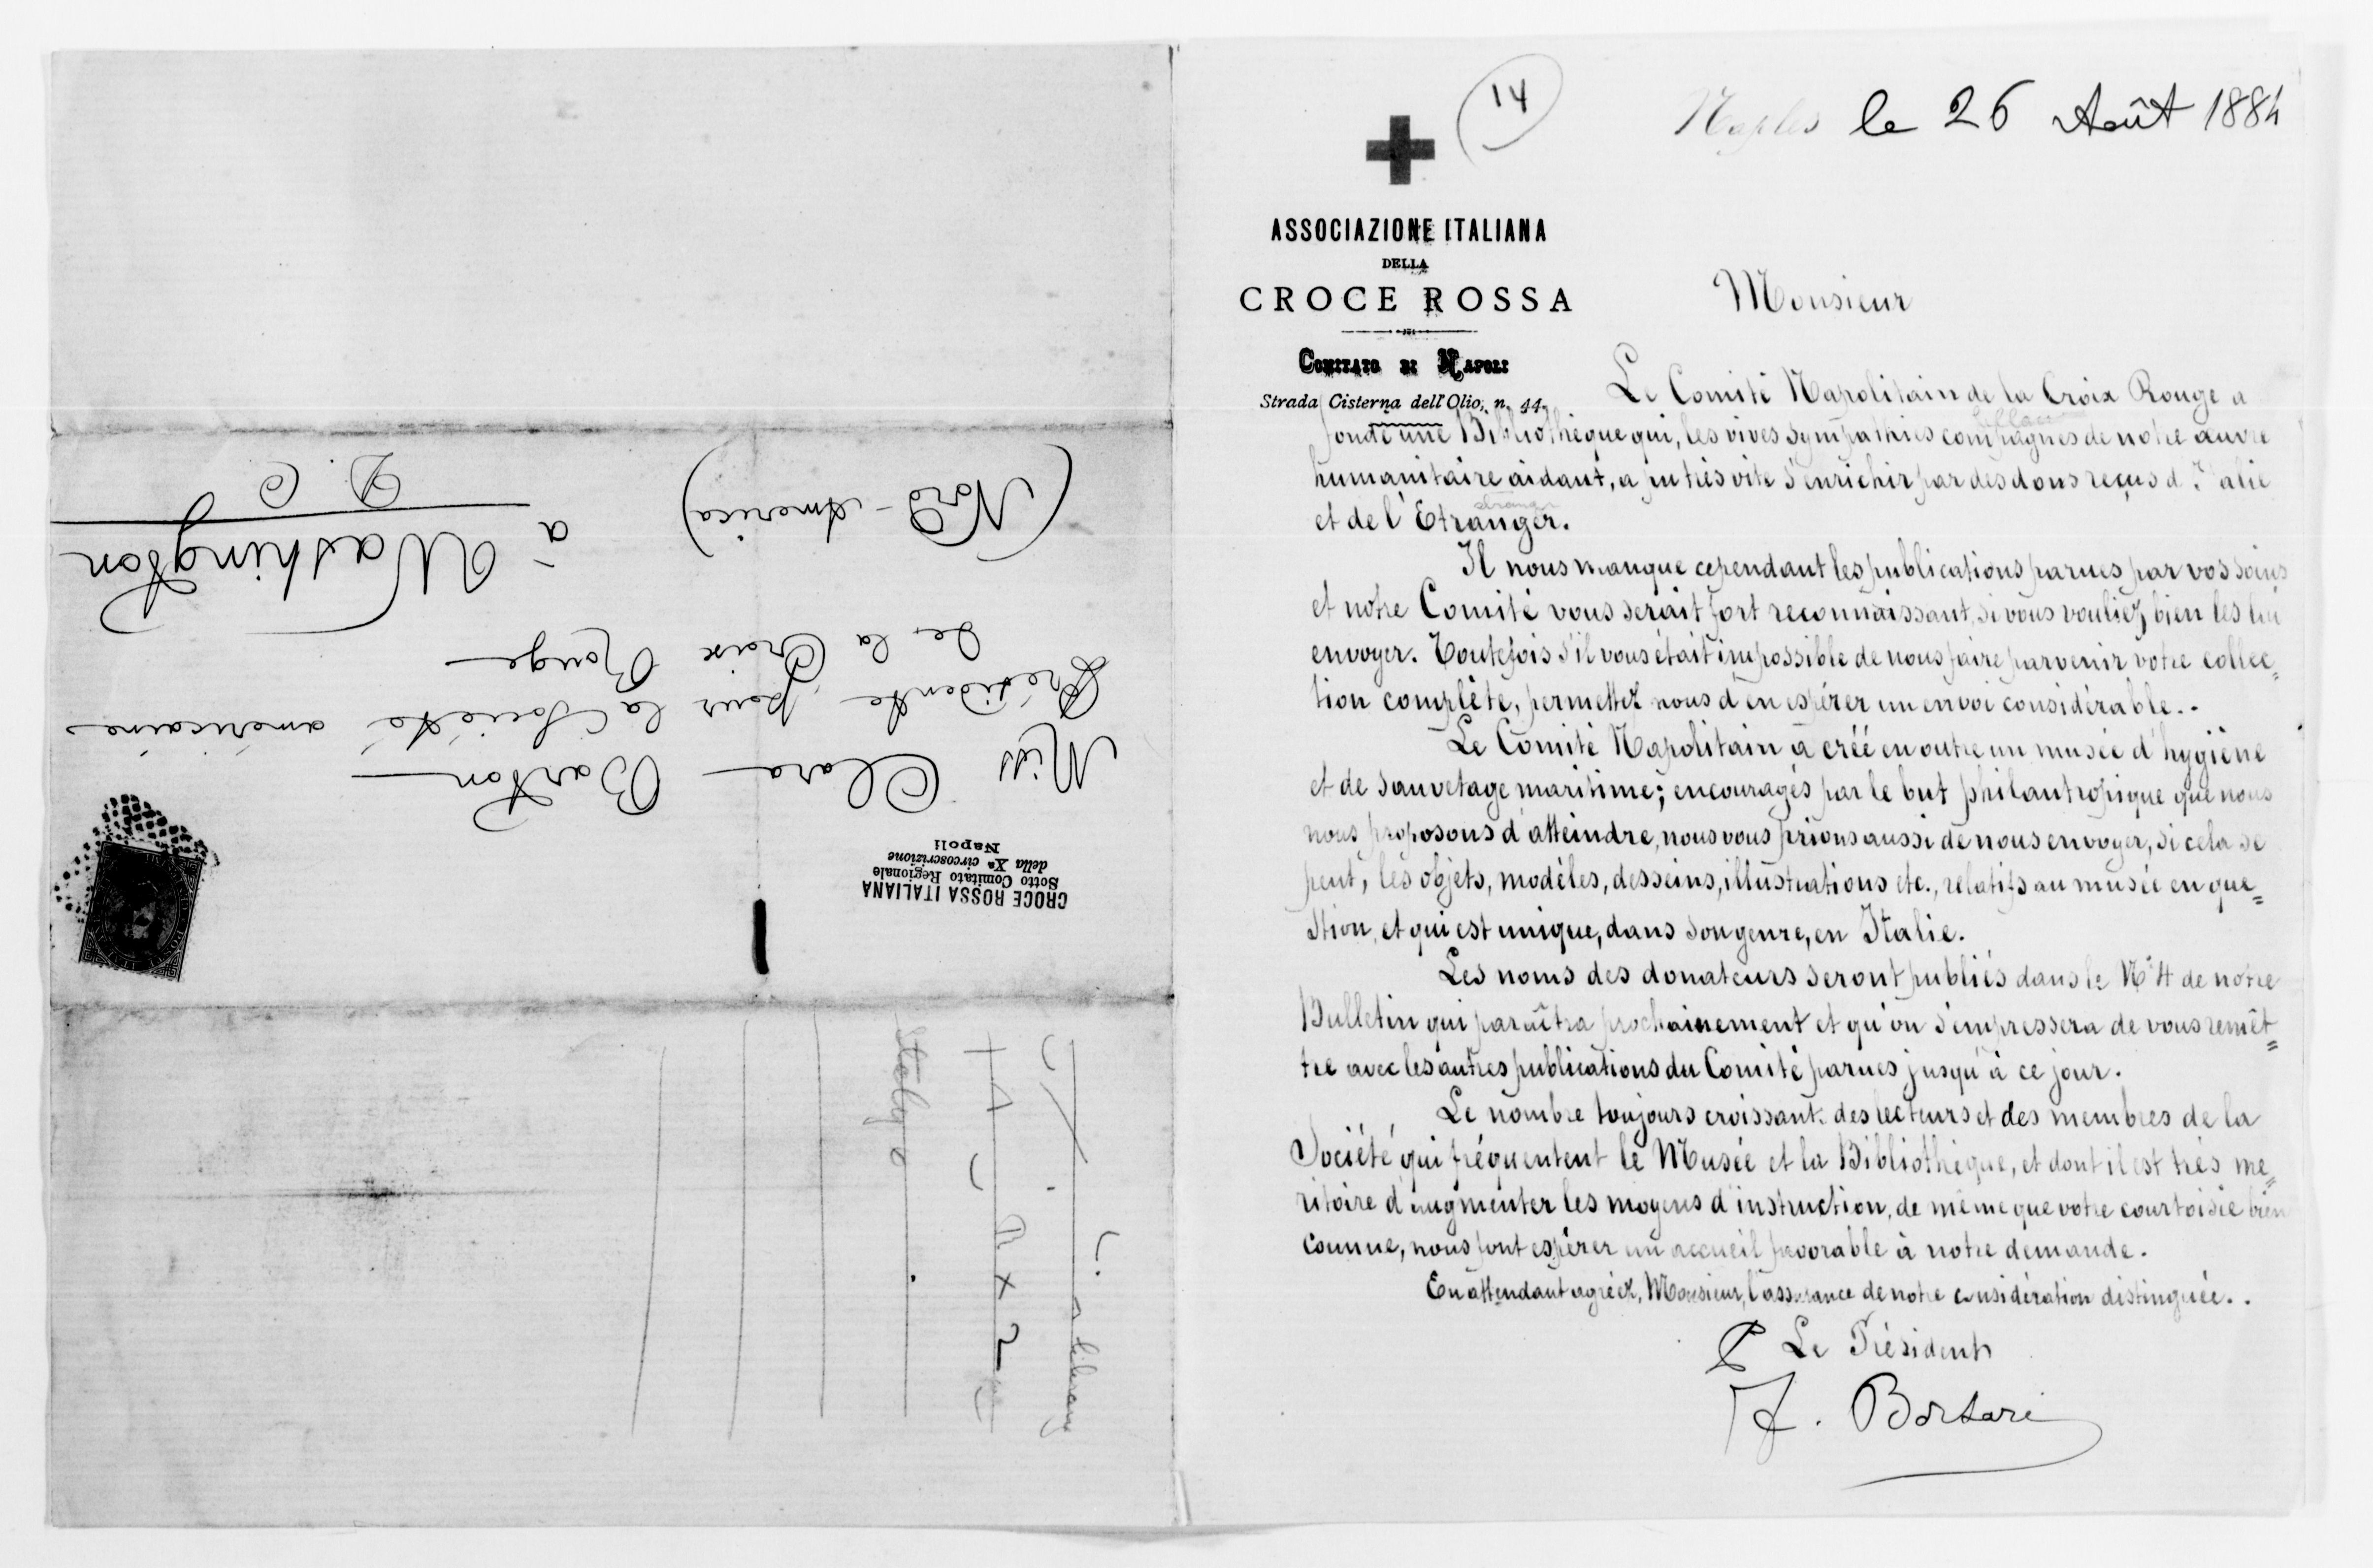 CROCE ROSSA ITALIANA
Sotto Comitato Regionale
della Xª circoscrizione
Napoli
Miss Clara Barton
Présidente pour la Société américaine
de la Croix Rouge
à Washington
D. C
(Nord-America)
Italy
library
14
Naples le 26 Août 1884
ASSOCIAZIONE ITALIANA
DELLA
CROCE ROSSA
COMITATO DI NAPOLI
Strada Cisterna dell'Olio, n. 44.
Monsieur
Le Comité Napolitain de la Croix Rouge a
fondé une Bibliothèque qui, les vives sympathies compagnes de notre œuvre
humanitaire aidant, a pu très vite s'enrichir par des dons reçus d'Italie
et de l'Etranger.
Il nous manque cependant les publications parues par vos soins
et notre Comité vous serait fort reconnaissant, si vous vouliez bien les lui
envoyer. Toutefois s'il vous était impossible de nous faire parvenir votre collec=
tion complète, permettez nous d'en espérer un envoi considérable. -
Le Comité Napolitain a créé en outre un musée d'hygiène
et de sauvetage maritime; encouragés par le but philantropique que nous
nous proposons d'atteindre, nous vous prions aussi de nous envoyer, si cela se
peut, les objets, modèles, desseins, illustrations etc., relatifs au musée en que=
stion, et qui est unique, dans son genre, en Italie.
Les noms des donateurs seront publiés dans le N° 4 de notre
Bulletin qui paraîtra prochainement et qu'on s'empressera de vous remêt=
tre avec les autres publications du Comité parues jusqu'à ce jour.
Le nombre toujours croissant des lecteurs et des membres de la
Société qui fréquentent le Musée et la Bibliothèque, et dont il est très me=
ritoire d'augmenter les moyens d'instruction, de même que votre courtoisie bien
connue, nous font espérer un accueil favorable à notre demande.
En attendant agréez, Monsieur, l'assurance de notre considération distinguée. .
P Le Président
F. Borsari